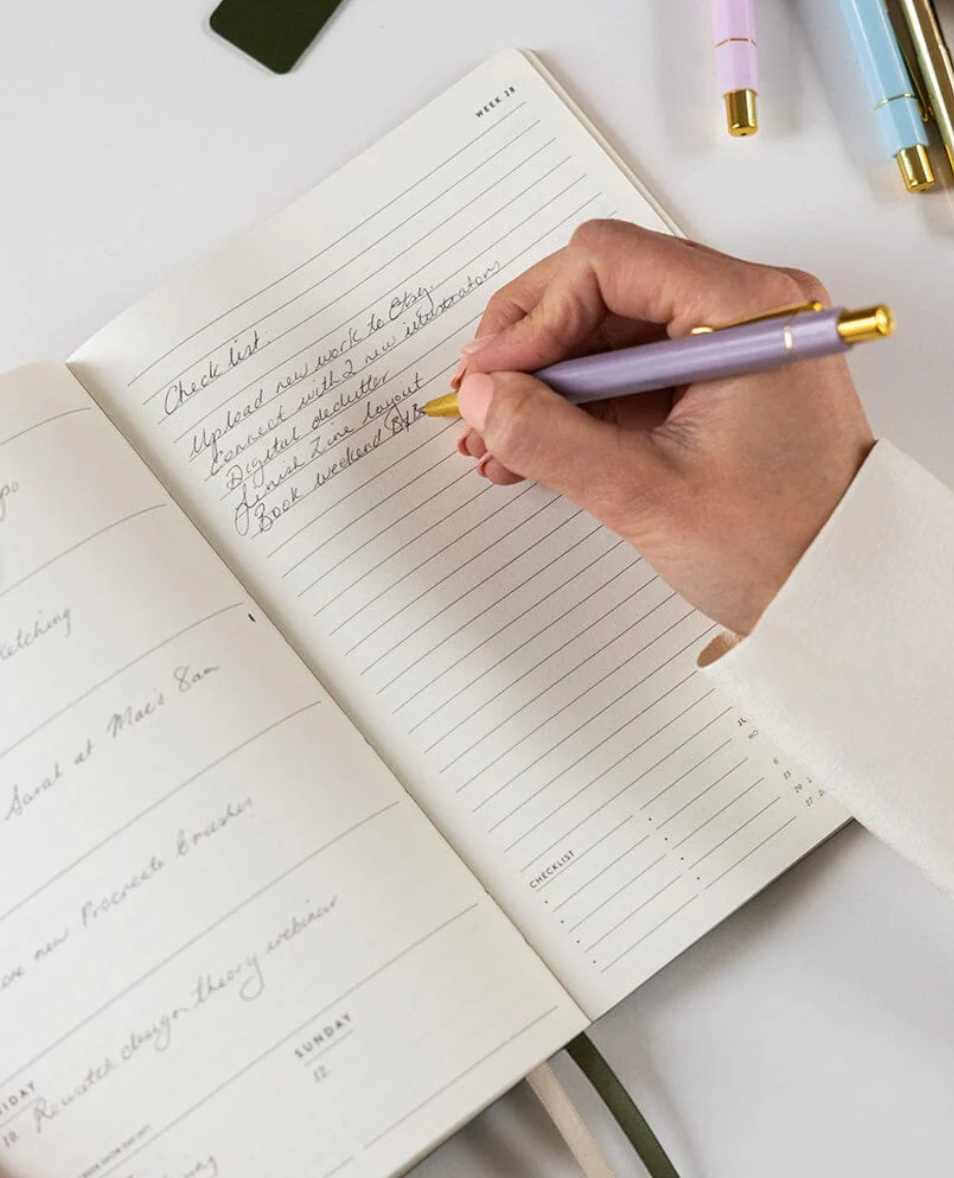 etching
Sarah at Mae's 8am
new Procreate brushes
Rewatch design theory webinar
10
SUNDAY
12
WEEK 28
Check list:
Upload new work to Etsy.
Connect with 2 new illustrators
Digital declutter
Finish Zine layout
Book weekend B&B
CHECKLIST
6
13
20
27